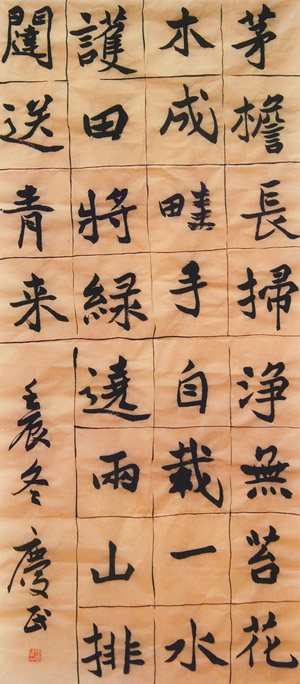 茅檐長掃淨無苔花
木成畦手自栽一水
護田將緑遶雨山排
闥送青来
壬辰冬慶民